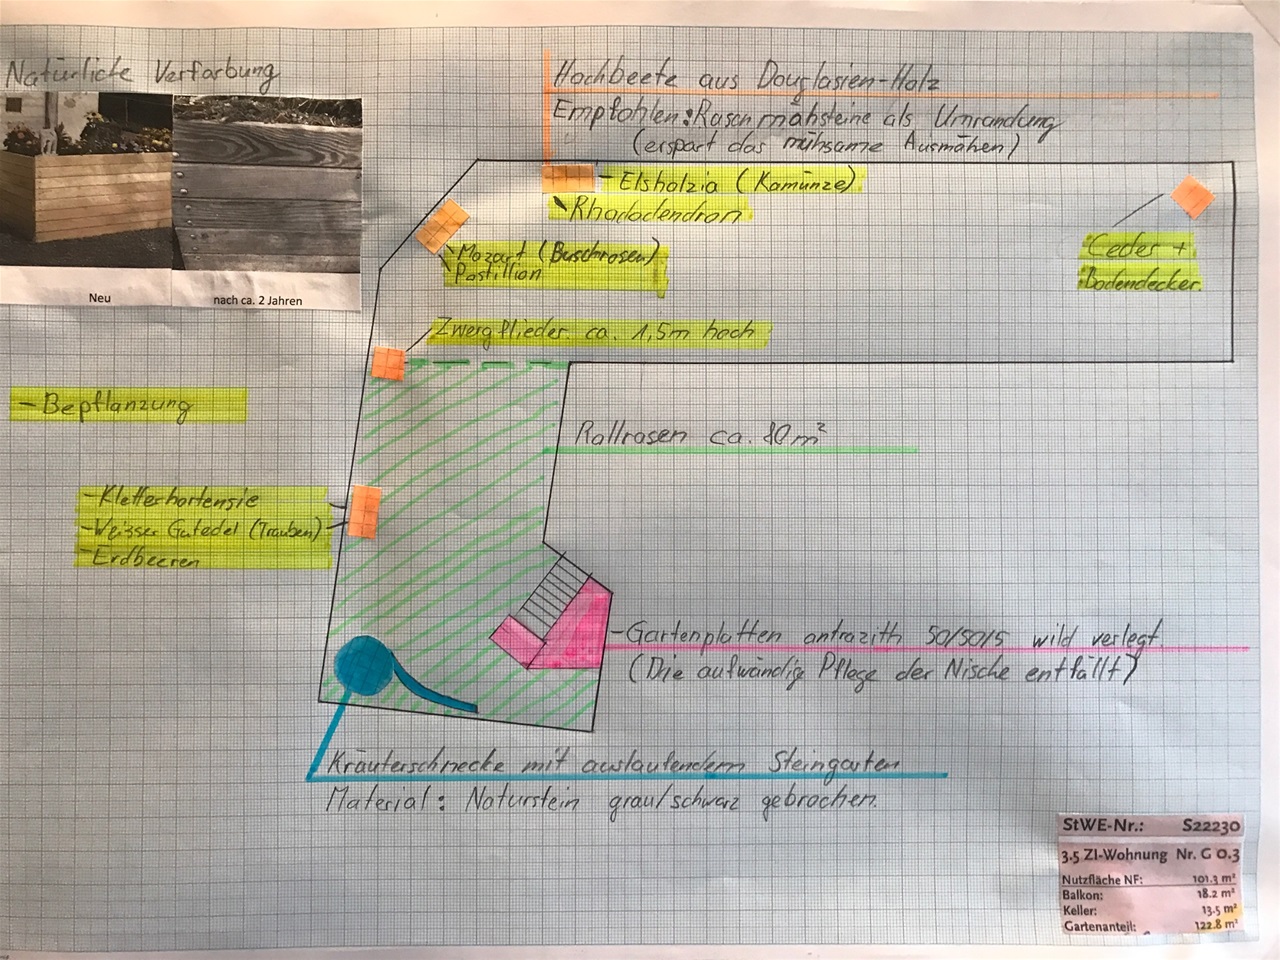 Natürliche Verfärbung
Neu
nach ca. 2 Jahren
Hochbeete aus Douglasien-Holz
Empfohlen: Rasenmähsteine als Umrandung
(erspart das mühsame Ausmähen)
- Elsholzia (Kamünze)
Rhododendron
Mozart (Buschrosen)
Pastillion
Ceder +
Bodendecker.
Zwergflieder. ca. 1,5m hoch
- Bepflanzung
Rollrasen ca. 80m²
- Kletterhortensie
- Weisser Gutedel (Trauben)
- Erdbeeren
- Gartenplatten antrazith 50/50/5 wild verlegt.
(Die aufwändig Pflege der Nische entfällt)
Kräuterschnecke mit auslaufendem Steingarten
Material: Naturstein grau/schwarz gebrochen.
StWE-Nr.: S22230
3.5 ZI-Wohnung Nr. G 0.3
Nutzfläche NF: 101.3 m²
Balkon: 18.2 m²
Keller: 13.5 m²
Gartenanteil: 122.8 m²